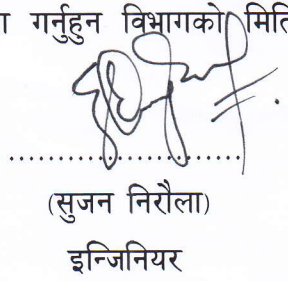 गर्नुहुन विभागको मिति
........................
(सुजन निरौला)
इन्जिनियर